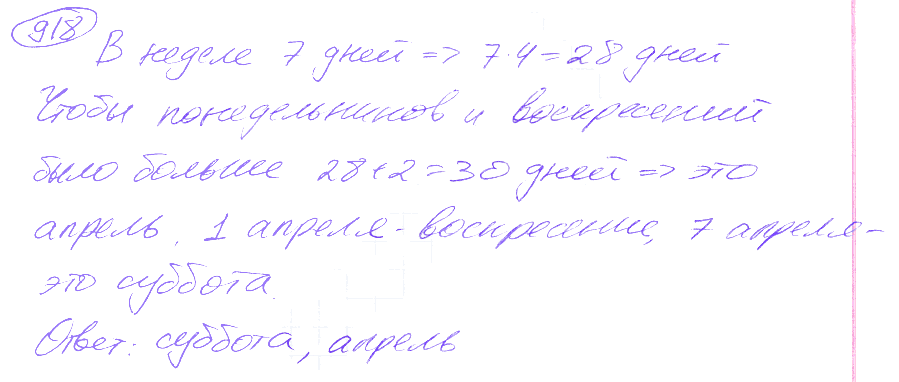 918
В неделе 7 дней => 7·4=28 дней
Чтобы понедельников и воскресений
было больше 28+2=30 дней => это
апрель. 1 апреля - воскресение, 7 апреля -
это суббота.
Ответ: суббота, апрель